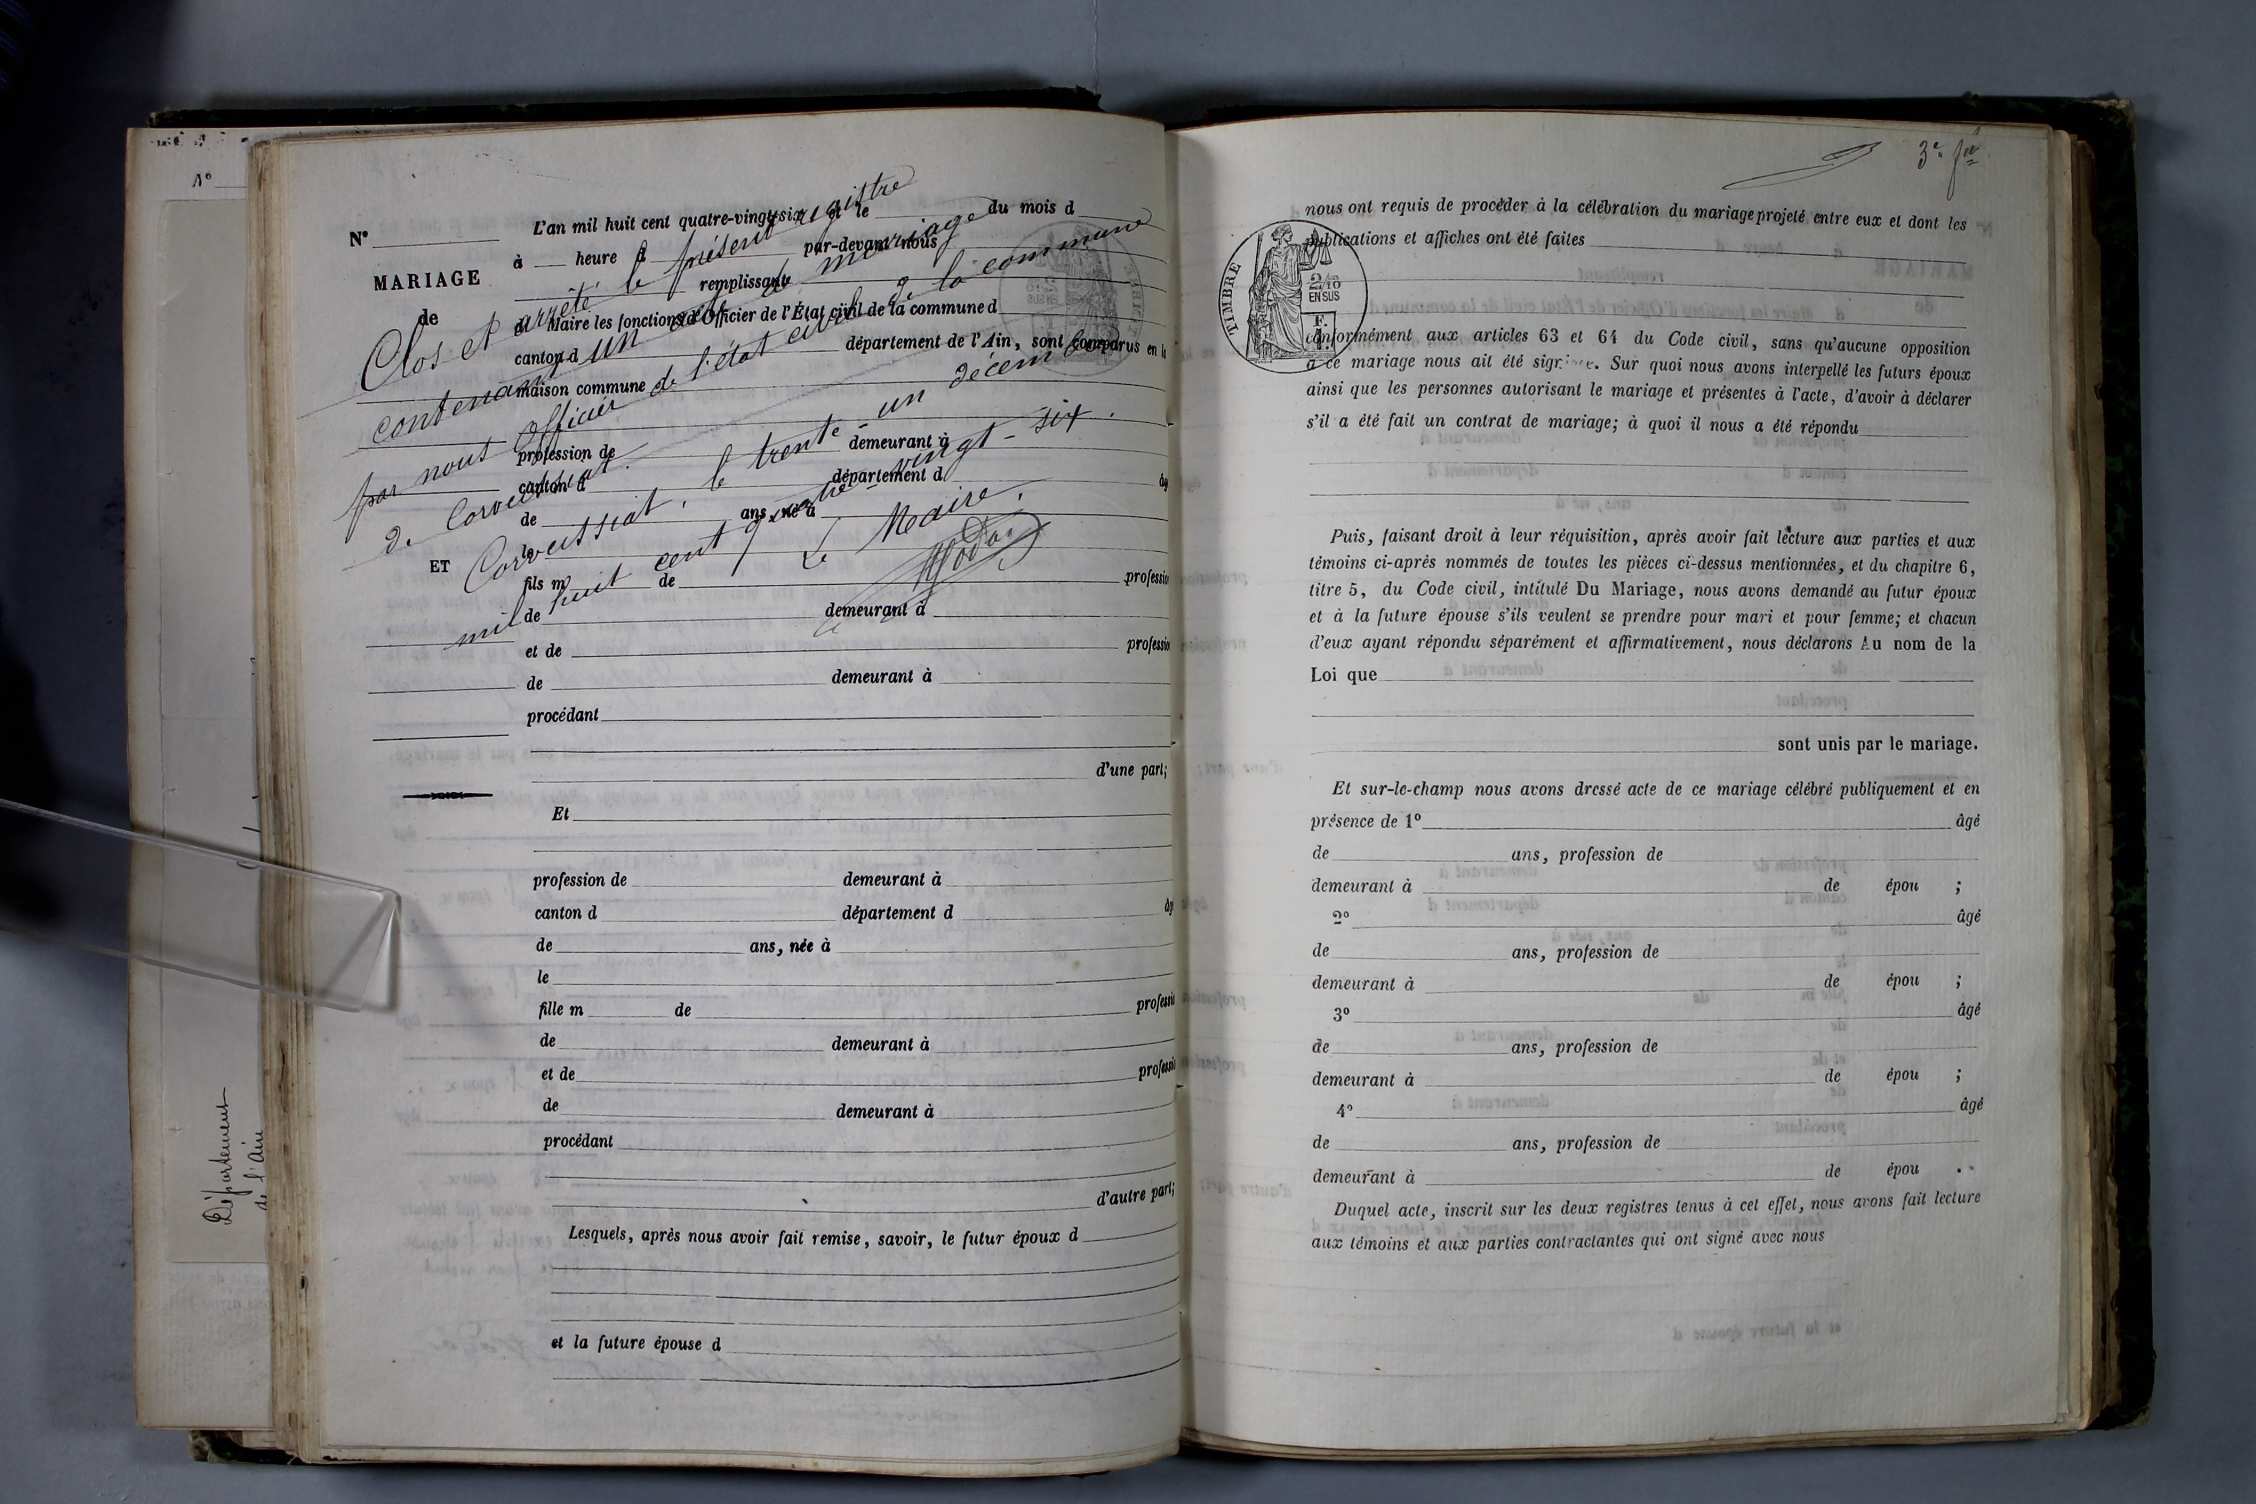 Nº
MARIAGE
de
ET
L'an mil huit cent quatre-vingt-six et le du mois d
à heure d par-devant nous
remplissant
d Maire les fonctions d'Officier de l'État civil de la commune d
canton d département de l'Ain, sont comparus en la
maison commune
profession de demeurant à
canton d département d âg
de ans, né à
le
fils m de profession
de demeurant à
et de profession
de demeurant à
procédant
d'une part;
Et
profession de demeurant à
canton d département d âg
de ans, née à
le
fille m de profession
de demeurant à
et de profession
de demeurant à
procédant
d'autre part;
Lesquels, après nous avoir fait remise, savoir, le futur époux d
et la future épouse d
Clos et arrêté le présent registre
contenant un acte de mariage
par nous Officier de l'état civil de la commune
de Corveissiat.
Corveissiat, le trente-un décembre
mil huit cent quatre-vingt-six.
Le Maire,
Département
de l'Ain
3e fet
nous ont requis de procéder à la célébration du mariage projeté entre eux et dont les
publications et affiches ont été faites
TIMBRE
2/10
EN SUS
conformément aux articles 63 et 64 du Code civil, sans qu'aucune opposition
à ce mariage nous ait été signifiée. Sur quoi nous avons interpellé les futurs époux
ainsi que les personnes autorisant le mariage et présentes à l'acte, d'avoir à déclarer
s'il a été fait un contrat de mariage; à quoi il nous a été répondu
Puis, faisant droit à leur réquisition, après avoir fait lecture aux parties et aux
témoins ci-après nommés de toutes les pièces ci-dessus mentionnées, et du chapitre 6,
titre 5, du Code civil, intitulé Du Mariage, nous avons demandé au futur époux
et à la future épouse s'ils veulent se prendre pour mari et pour femme; et chacun
d'eux ayant répondu séparément et affirmativement, nous déclarons Au nom de la
Loi que
sont unis par le mariage.
Et sur-le-champ nous avons dressé acte de ce mariage célébré publiquement et en
présence de 1º âgé
de ans, profession de
demeurant à de épou ;
2º âgé
de ans, profession de
demeurant à de épou ;
3º âgé
de ans, profession de
demeurant à de épou ;
4º âgé
de ans, profession de
demeurant à de épou .
Duquel acte, inscrit sur les deux registres tenus à cet effet, nous avons fait lecture
aux témoins et aux parties contractantes qui ont signé avec nous